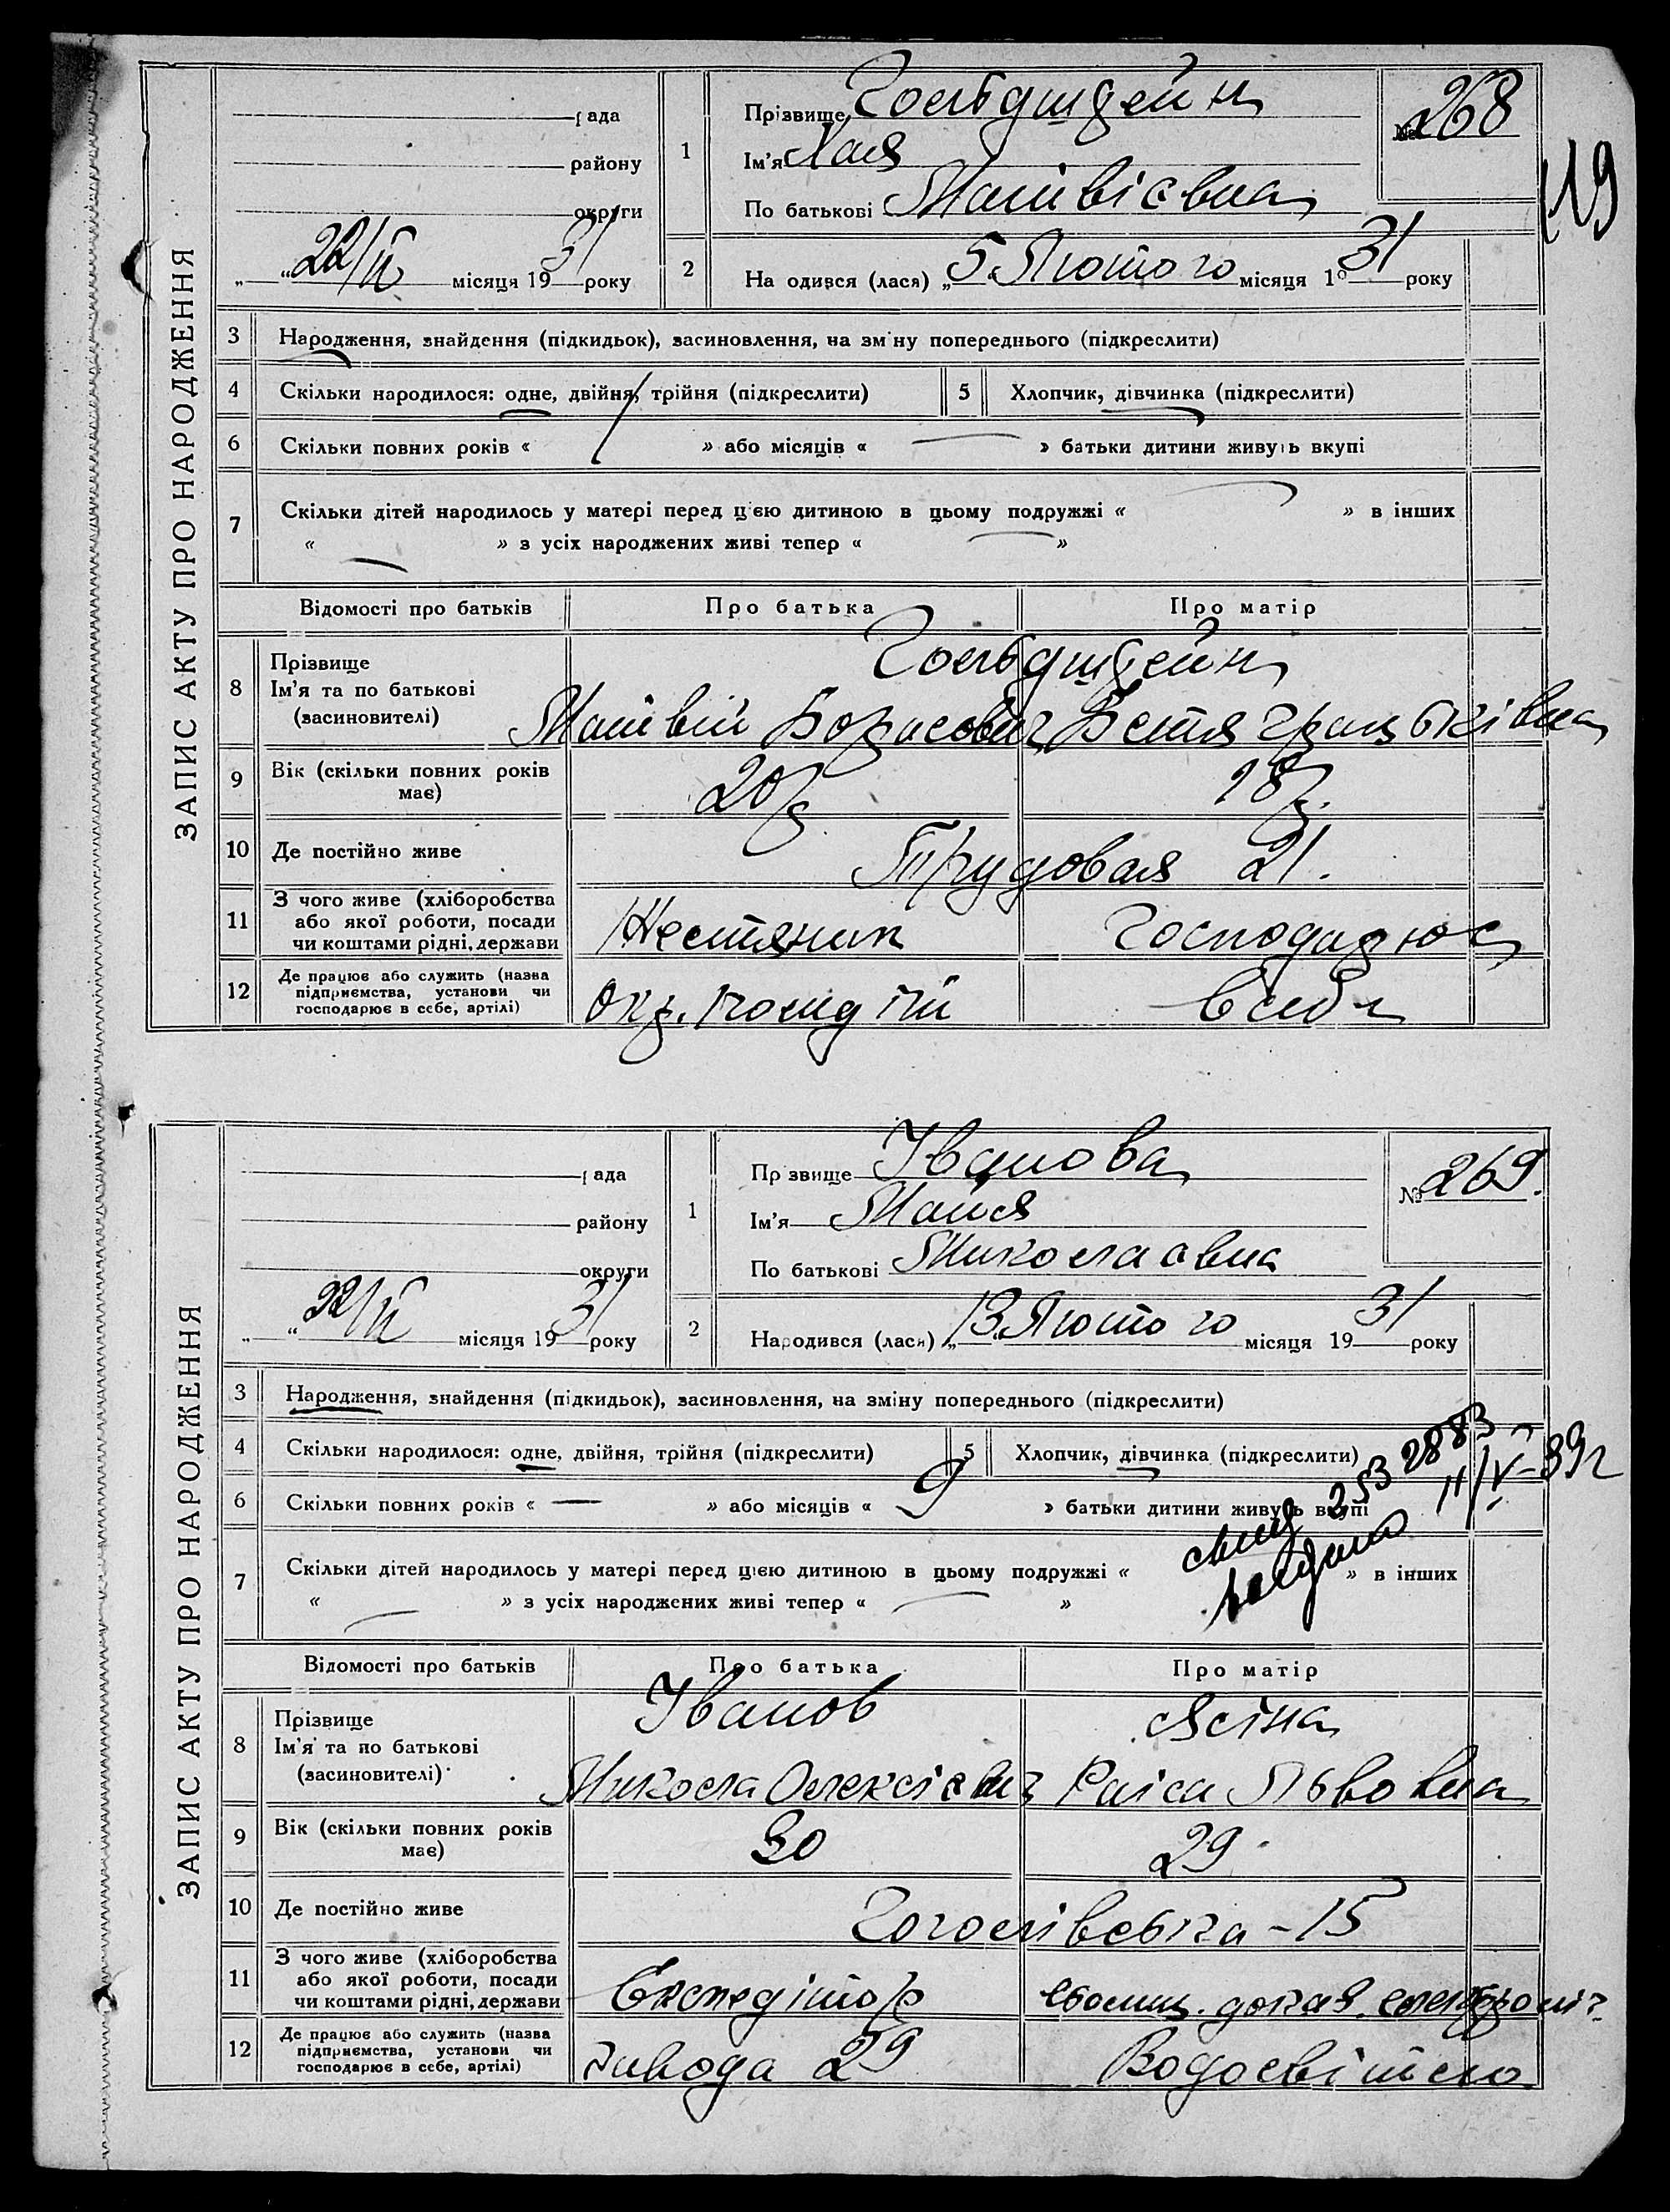 ЗАПИС АКТУ ПРО НАРОДЖЕННЯ
рада
району
округи
„ “ 22/II місяця 1931 року
1 Прізвище Гольдштейн
Ім’я Хая
По батькові Матвієвна
№ 268
119
2 На одився (лася) „ 5 Лютого місяця 1931 року
3 Народження, знайдення (підкидьок), засиновлення, на зм ну попереднього (підкреслити)
4 Скільки народилося: одне, двійня, трійня (підкреслити) 5 Хлопчик, дівчинка (підкреслити)
6 Скільки повних років « » або місяців « — » батьки дитини живуть вкупі
7 Скільки дітей народилось у матері перед цією дитиною в цьому подружжі « — » в інших
« — » з усіх народжених живі тепер « — »
Відомості про батьків Про батька Про матір
8 Прізвище Гольдштейн
Ім’я та по батькові
(засиновителі) Матвій Борисович Бетя
9 Вік (скільки повних років має) 20р 18р.
10 Де постійно живе Трудовая 21.
11 З чого живе (хліборобства
або якої роботи, посади
чи коштами рідні, держави Жестяник Господарює
12 Де працює або служить (назва
підприємства, установи чи
господарює в себе, артілі) в себе
ЗАПИС АКТУ ПРО НАРОДЖЕННЯ
рада
району
округи
„ “ 22/II місяця 1931 року
1 Пр звище Іванова
Ім’я Майя
По батькові Миколаєвна
№ 269.
2 Народився (лася) „ 13 Лютого місяця 1931 року
3 Народження, знайдення (підкидьок), засиновлення, на зміну попереднього (підкреслити)
4 Скільки народилося: одне, двійня, трійня (підкреслити) 5 Хлопчик, дівчинка (підкреслити)
6 Скільки повних років « — » або місяців « 9 » батьки дитини живуть вкупі
7 Скільки дітей народилось у матері перед цією дитиною в цьому подружжі « » в інших
« — » з усіх народжених живі тепер « — »
253 2883
11/V-39г
Відомості про батьків Про батька Про матір
8 Прізвище Іванов Ясіна
Ім’я та по батькові
(засиновителі) Микола Олексієвич Раїса Львовна
9 Вік (скільки повних років має) 30 29
10 Де постійно живе Гоголівська – 15
11 З чого живе (хліборобства
або якої роботи, посади
чи коштами рідні, держави Експедітор
12 Де працює або служить (назва
підприємства, установи чи
господарює в себе, артілі) завода 29 Водосвітло